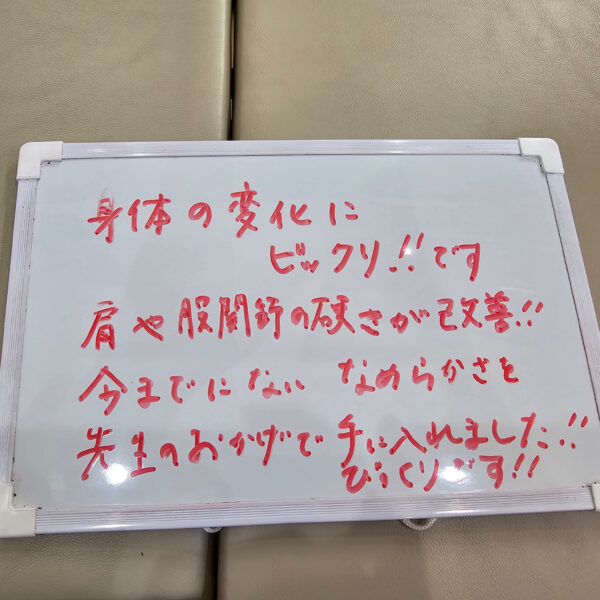 身体の変化に
ビックリ!!です
肩や股関節の硬さが改善!!
今までにない なめらかさを
先生のおかげで手に入れました!!
びっくりです!!